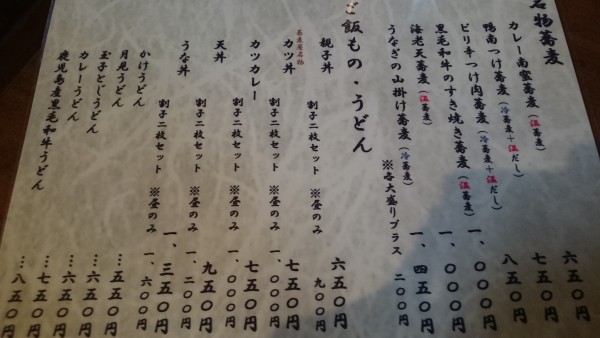 名物蕎麦
カレー南蛮蕎麦(温蕎麦) 六五〇円
鴨南つけ蕎麦(冷蕎麦+温だし) 七五〇円
ピリ辛つけ肉蕎麦(冷蕎麦+温だし) 八五〇円
黒毛和牛のすき焼き蕎麦(温蕎麦) 一、〇〇〇円
海老天蕎麦(温蕎麦) 一、〇〇〇円
うなぎの山掛け蕎麦(冷蕎麦) 一、四五〇円
※各大盛りプラス 二〇〇円
ご飯もの・うどん
親子丼 六五〇円
割子二枚セット ※昼のみ 九〇〇円
蕎麦屋名物
カツ丼 七五〇円
割子二枚セット ※昼のみ 一、〇〇〇円
カツカレー 七五〇円
割子二枚セット ※昼のみ 一、〇〇〇円
天丼 九五〇円
割子二枚セット ※昼のみ 一、二〇〇円
うな丼 一、三五〇円
割子二枚セット ※昼のみ 一、六〇〇円
かけうどん …五五〇円
月見うどん …六五〇円
玉子とじうどん …六五〇円
カレーうどん …七五〇円
鹿児島産黒毛和牛うどん …八五〇円